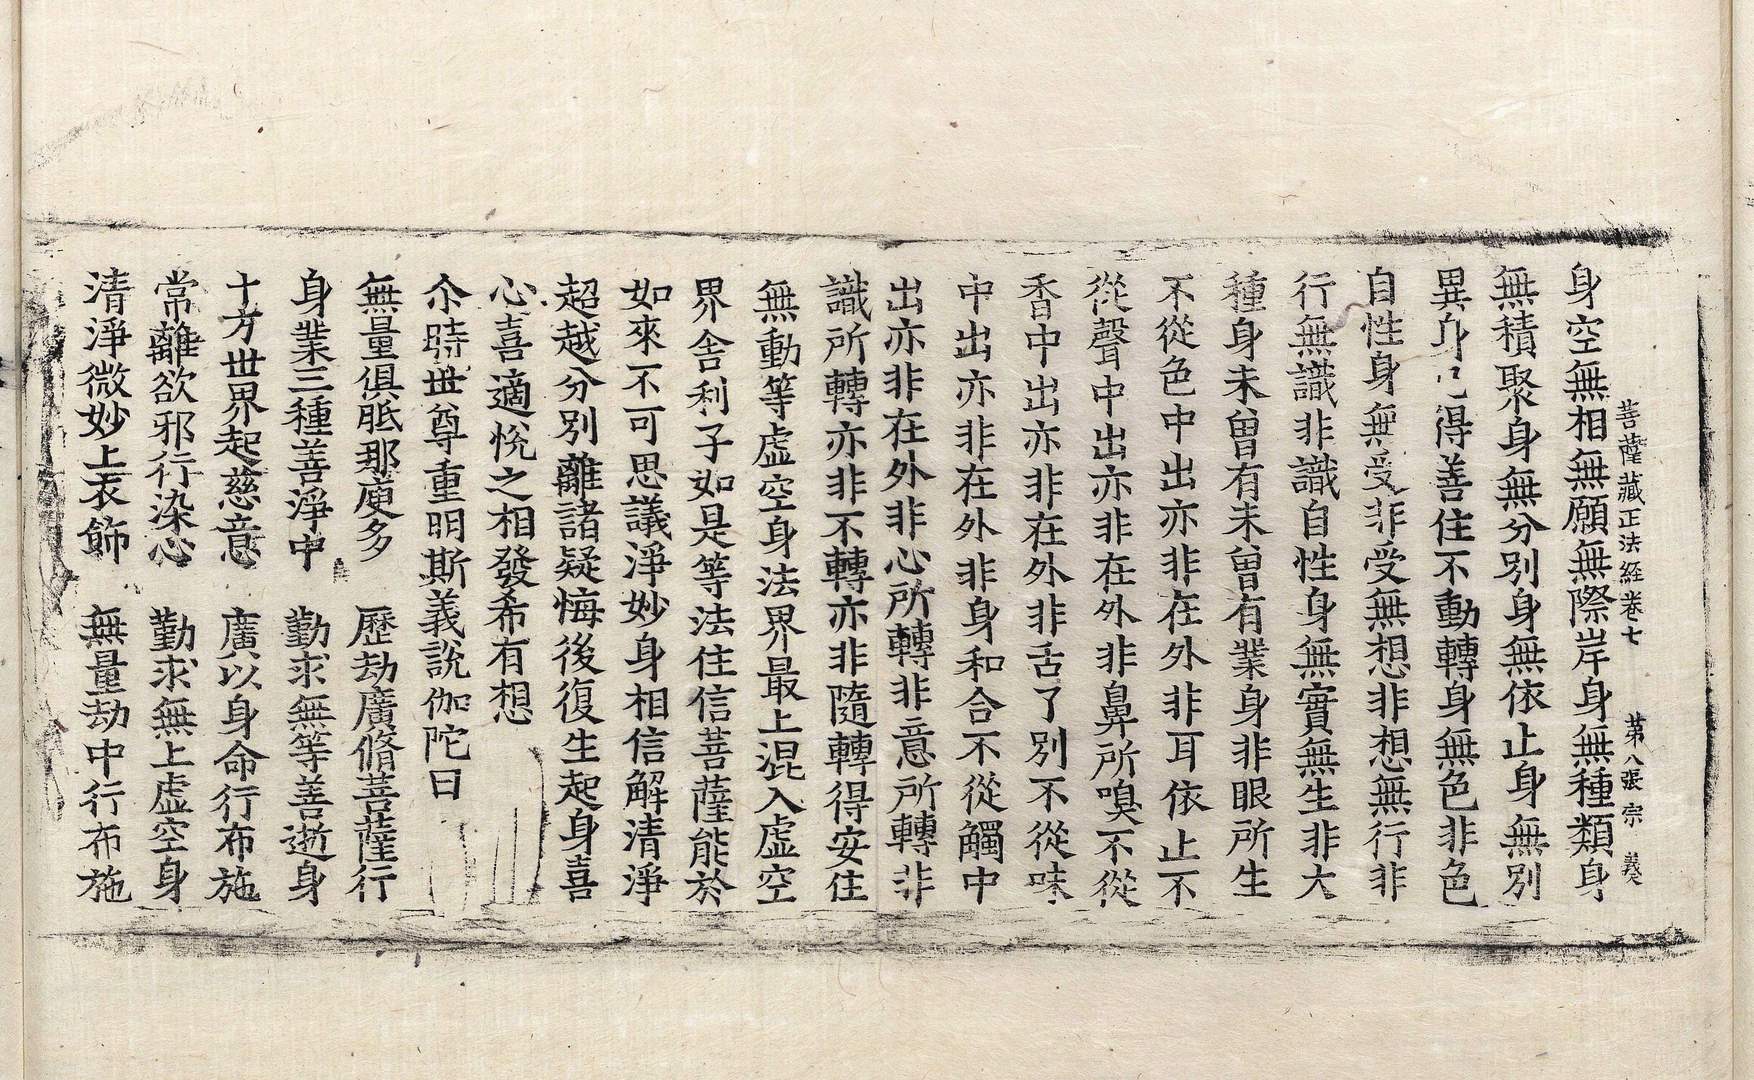 菩薩藏正法經卷七 第八張 宗 義
身空無相無願無際岸身無種類身
無積聚身無分別身無依止身無別
異身 得善住不動轉身無色非色
自性身無受非受無想非想無行非
行無識非識自性身無實無生非大
種身未曾有未曾有業身非眼所生
不從色中出亦非在外非耳依止不
從聲中出亦非在外非鼻所嗅不從
香中出亦非在外非舌了別不從味
中出亦非在外非身和合不從觸中
出亦非在外非心所轉非意所轉非
識所轉亦非不轉亦非隨轉得安住
無動等虛空身法界最上混入虛空
界舍利子如是等法住信菩薩能於
如來不可思議淨妙身相信解清淨
超越分別離諸疑悔後復生起身喜
心喜適悅之相發希有想
尒時世尊重明斯義說伽陀曰
無量俱胝那庾多 歷劫廣脩菩薩行
身業三種善淨中 勤求無等善逝身
十方世界起慈意 廣以身命行布施
常離欲邪行染心 勤求無上虛空身
清淨微妙上衣飾 無量劫中行布施